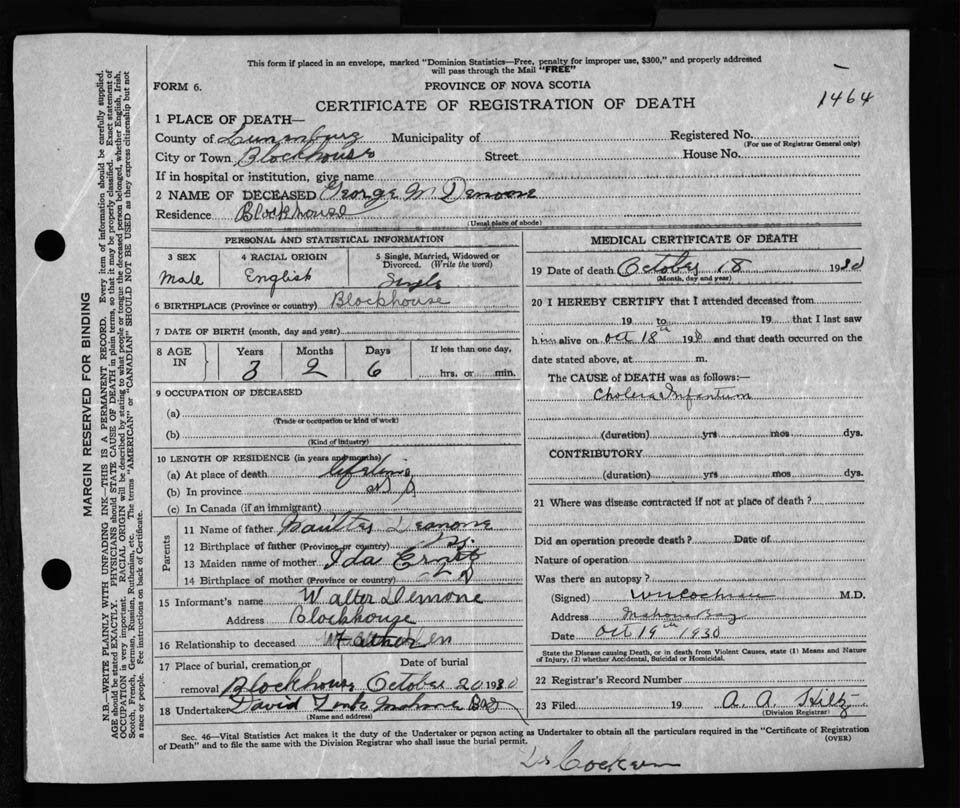 This form if placed in an envelope, marked "Dominion Statistics—Free, penalty for improper use, $300," and properly addressed
will pass through the Mail "FREE"
FORM 6.
PROVINCE OF NOVA SCOTIA
1464
CERTIFICATE OF REGISTRATION OF DEATH
1 PLACE OF DEATH—
County of Lunenburg Municipality of Registered No.
(For use of Registrar General only)
City or Town Blockhouse Street House No.
If in hospital or institution, give name
2 NAME OF DECEASED George M Demone
Residence Blockhouse
(Usual place of abode)
PERSONAL AND STATISTICAL INFORMATION
3 SEX 4 RACIAL ORIGIN 5 Single, Married, Widowed or
Divorced. (Write the word)
Male English Single
6 BIRTHPLACE (Province or country) Blockhouse
7 DATE OF BIRTH (month, day and year)
8 AGE IN Years Months Days If less than one day,
3 2 6 hrs. or min.
9 OCCUPATION OF DECEASED
(a)
(Trade or occupation or kind of work)
(b)
(Kind of industry)
10 LENGTH OF RESIDENCE (in years and months)
(a) At place of death lifetime
(b) In province
(c) In Canada (if an immigrant)
Parents
11 Name of father Demone
12 Birthplace of father (Province or country) N.S.
13 Maiden name of mother Ida Ernst
14 Birthplace of mother (Province or country)
15 Informant's name Walter Demone
Address Blockhouse
16 Relationship to deceased Father
17 Place of burial, cremation or Date of burial
removal Blockhouse October 20 1930
18 Undertaker David Mahone Bay
(Name and address)
MEDICAL CERTIFICATE OF DEATH
19 Date of death October 18 1930
(Month, day and year)
20 I HEREBY CERTIFY that I attended deceased from
19 to 19 that I last saw
him alive on Oct 18th 1930 and that death occurred on the
date stated above, at m.
The CAUSE of DEATH was as follows:—
Cholera Infantum
(duration) yrs mos dys.
CONTRIBUTORY
(duration) yrs mos dys.
21 Where was disease contracted if not at place of death?
Did an operation precede death? Date of
Nature of operation
Was there an autopsy?
(Signed) W N Cochran M.D.
Address Mahone Bay
Date Oct 19th 1930
State the Disease causing Death, or in death from Violent Causes, state (1) Means and Nature
of Injury, (2) whether Accidental, Suicidal or Homicidal.
22 Registrar's Record Number
23 Filed 19 A. A. Hiltz
(Division Registrar)
Sec. 46—Vital Statistics Act makes it the duty of the Undertaker or person acting as Undertaker to obtain all the particulars required in the "Certificate of Registration
of Death" and to file the same with the Division Registrar who shall issue the burial permit.
(OVER)
Dr Cochran
MARGIN RESERVED FOR BINDING
N.B.—WRITE PLAINLY WITH UNFADING INK—THIS IS A PERMANENT RECORD. Every item of information should be carefully supplied.
AGE should be stated EXACTLY. PHYSICIANS should STATE CAUSE OF DEATH in plain terms, so that it may be properly classified. Exact statement of
OCCUPATION is very important. RACIAL ORIGIN will be described by stating to what people or tongue the deceased person belonged, whether English, Irish,
Scotch, French, German, Russian, Ruthenian, etc. The terms "AMERICAN" or "CANADIAN" SHOULD NOT BE USED as they express citizenship but not
a race or people. See instructions on back of Certificate.